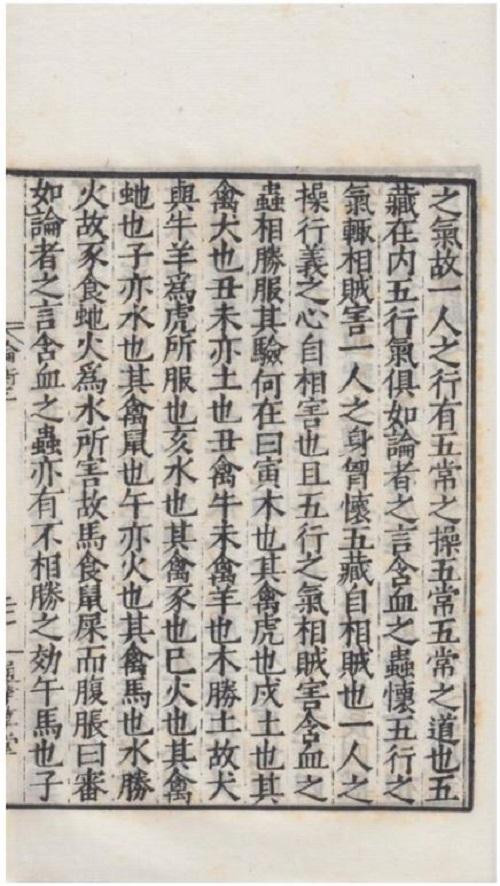 之氣故一人之行有五常之操五常五常之道也五
藏在内五行氣俱如論者之言含血之蟲懷五行之
氣輙相賊害一人之身胷懷五藏自相賊也一人之
操行義之心自相害也且五行之氣相賊害含血之
蟲相勝服其驗何在曰寅木也其禽虎也戌土也其
禽犬也丑未亦土也丑禽牛未禽羊也木勝土故犬
與牛羊爲虎所服也亥水也其禽豕也巳火也其禽
虵也子亦水也其禽鼠也午亦火也其禽馬也水勝
火故豕食虵火爲水所害故馬食鼠屎而腹脹曰審
如論者之言含血之蟲亦有不相勝之効午馬也子